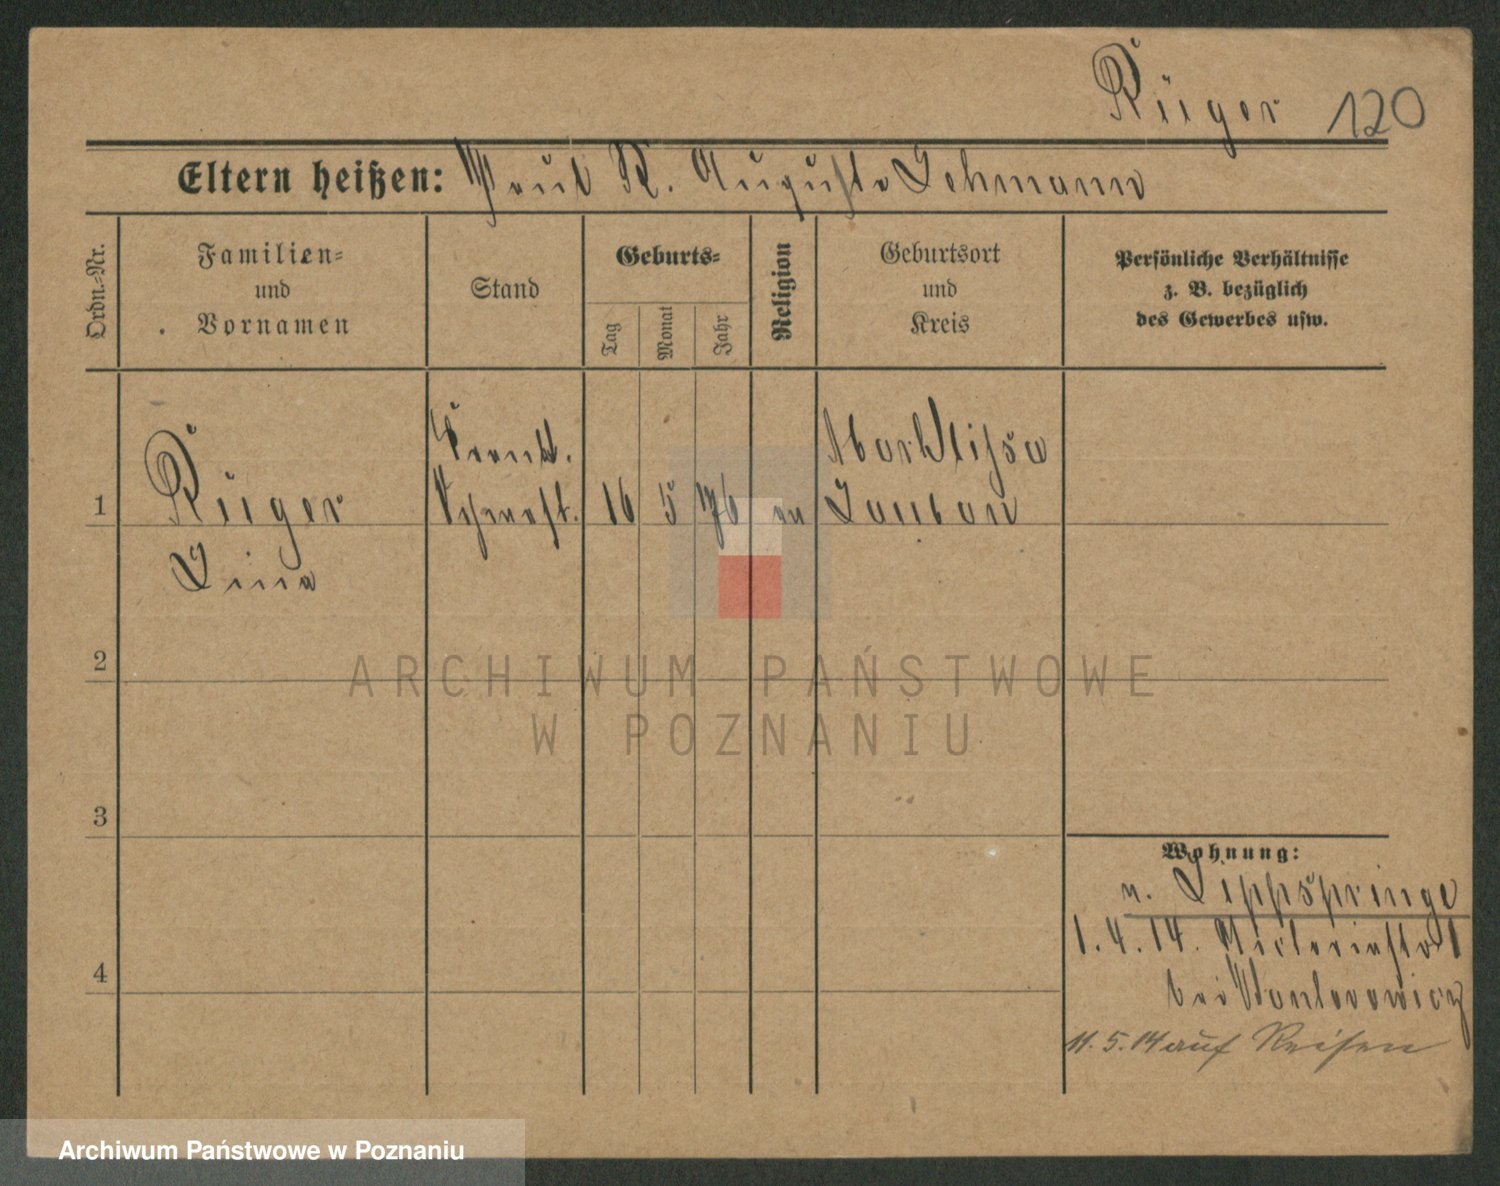 Rüger 120
Eltern heißen: Paul R. Auguste Lehmann
Ordn.-Nr.
Familien-
und
Vornamen
Stand
Geburts-
Tag
Monat
Jahr
Religion
Geburtsort
und
Kreis
Persönliche Verhältnisse
z. B. bezüglich
des Gewerbes usw.
Marklissa
1 Rüger Schwest. 16 5 76 ev Lauban
Lina
2
ARCHIWUM PAŃSTWOWE
W POZNANIU
3
Wohnung:
v. Lippspringe
4
1.4.14. Victoriastr 1
bei
11.5.14 auf Reisen
Archiwum Państwowe w Poznaniu